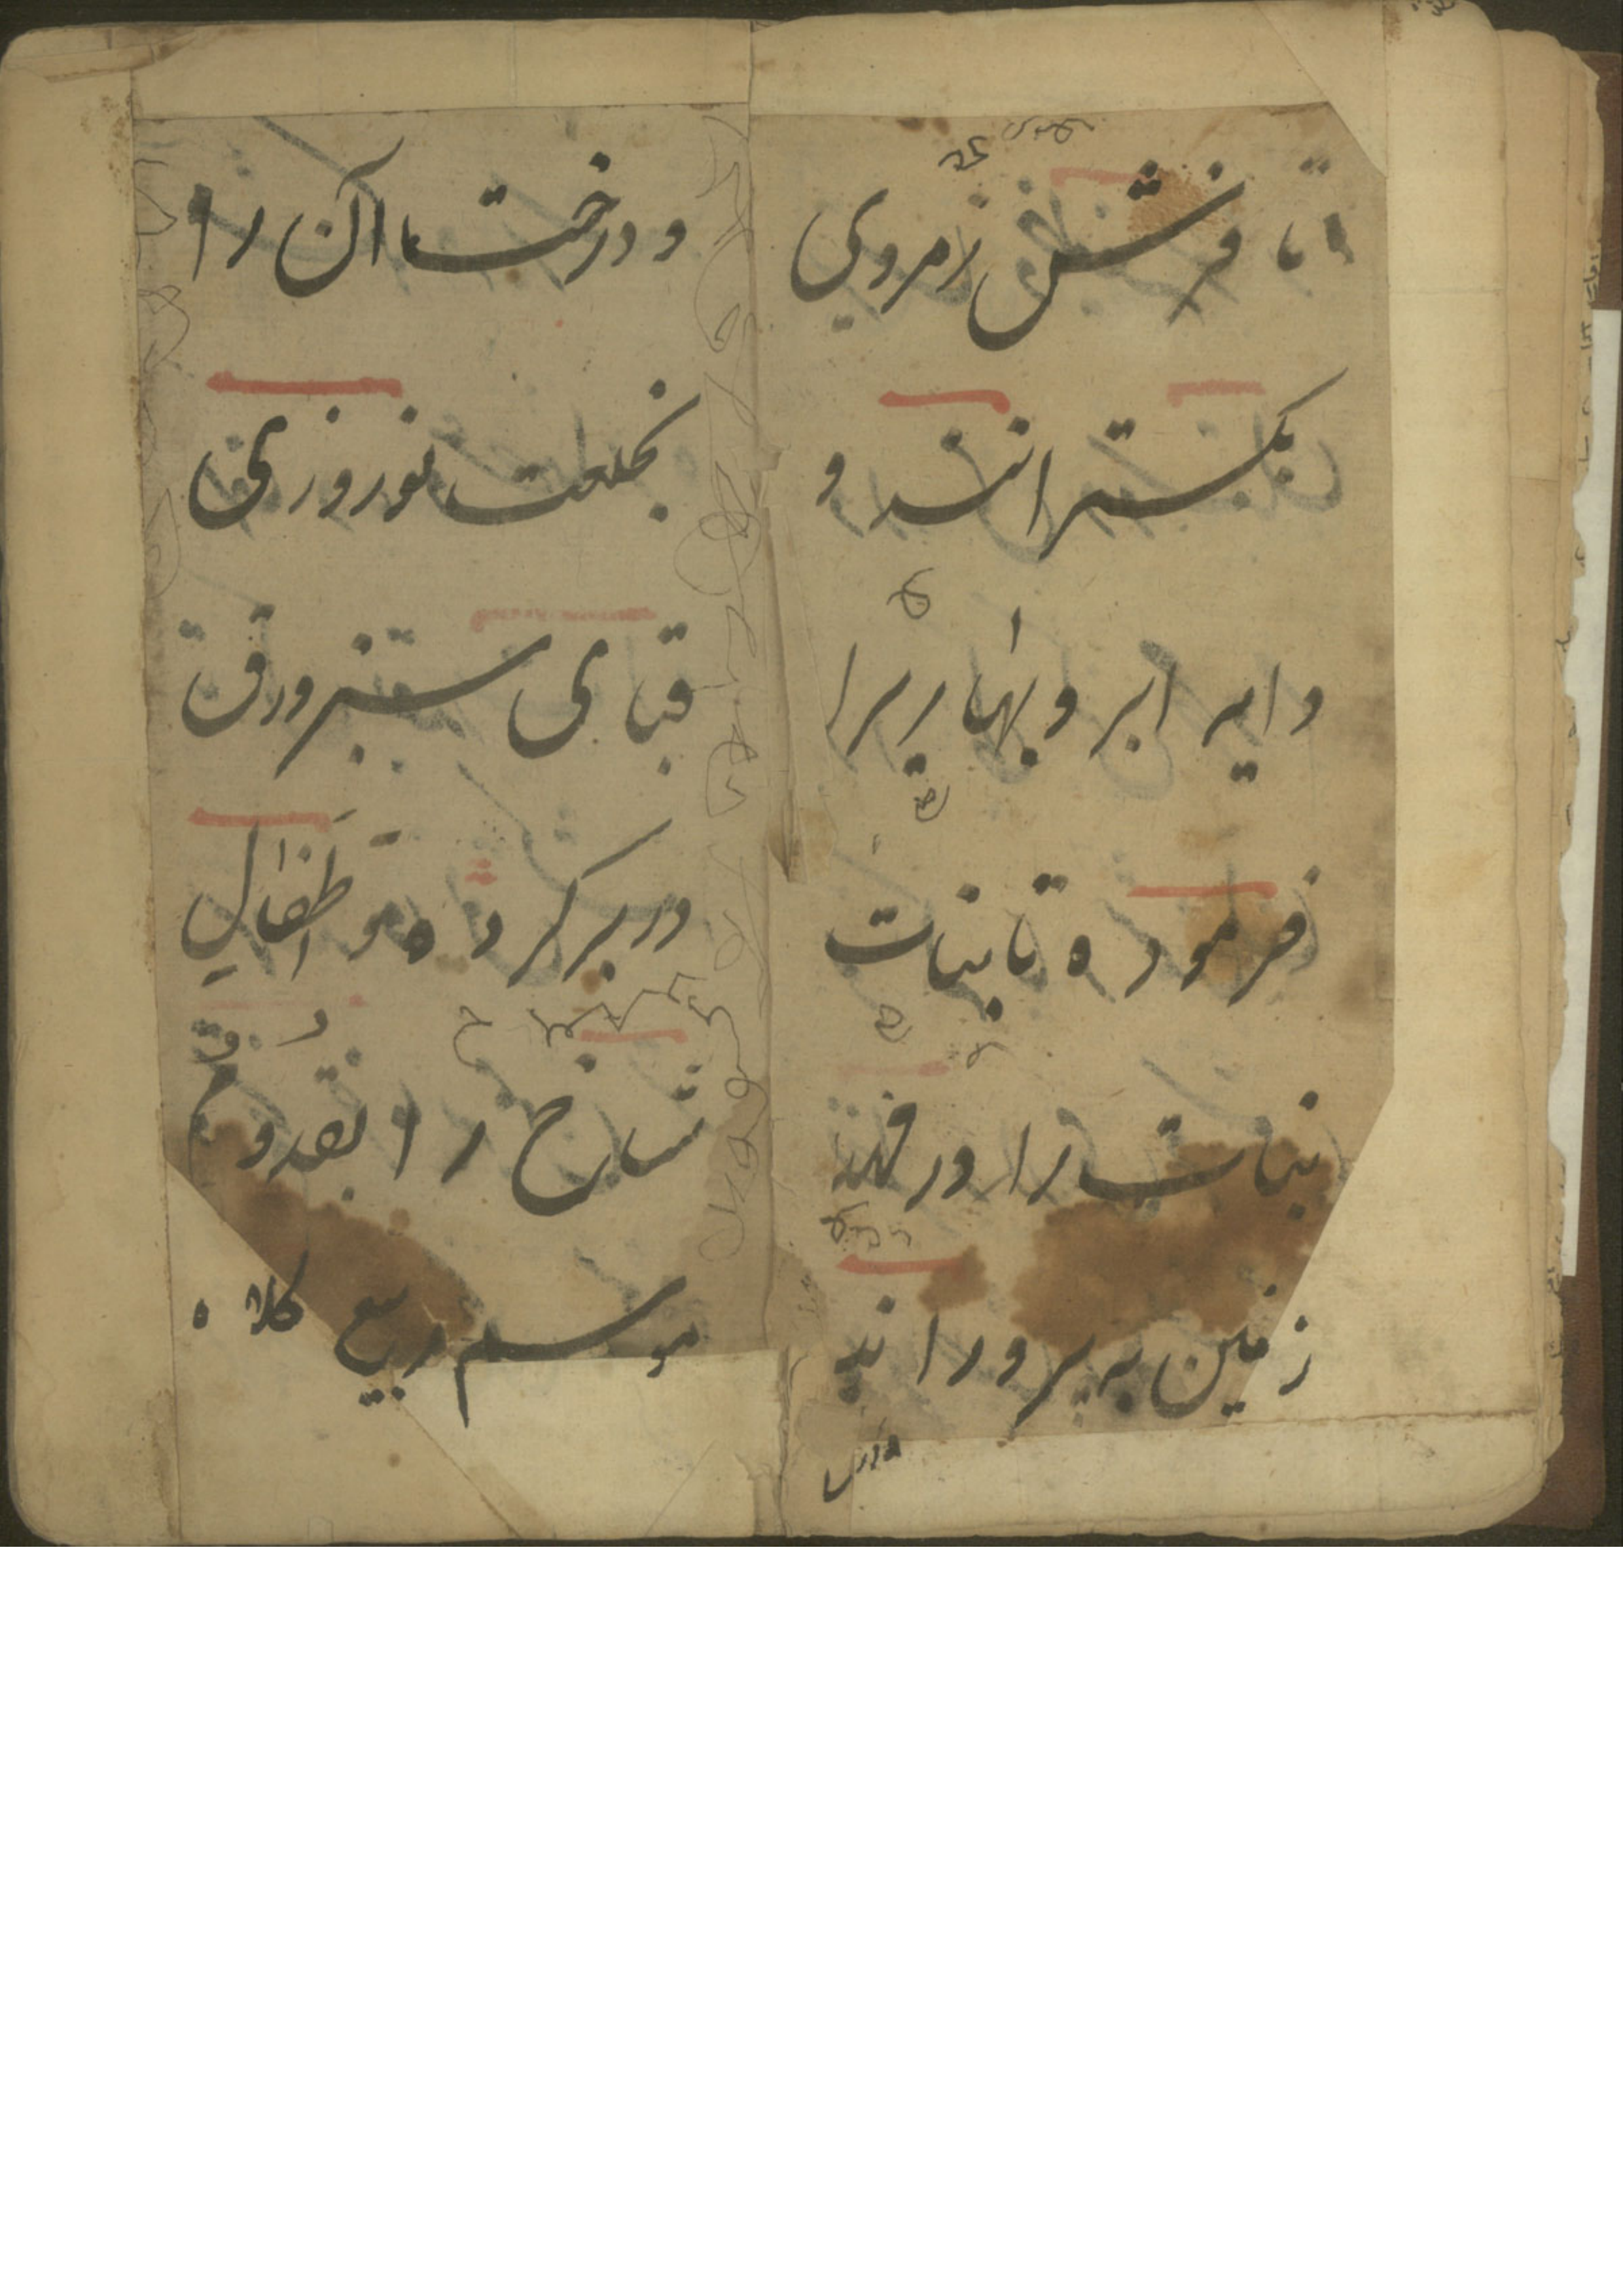 تا فرش زمروی
بکستراند و
دایه ابر و بهاریرا
فرموده تا بنات
بنات را در مهد
زمین به پروراند
و درختاان را
بخلعت نوروزی
قبای سبز ورق
در بر کرده و اطفال
شاخ را بقدوم
موسم ربیع کلاه